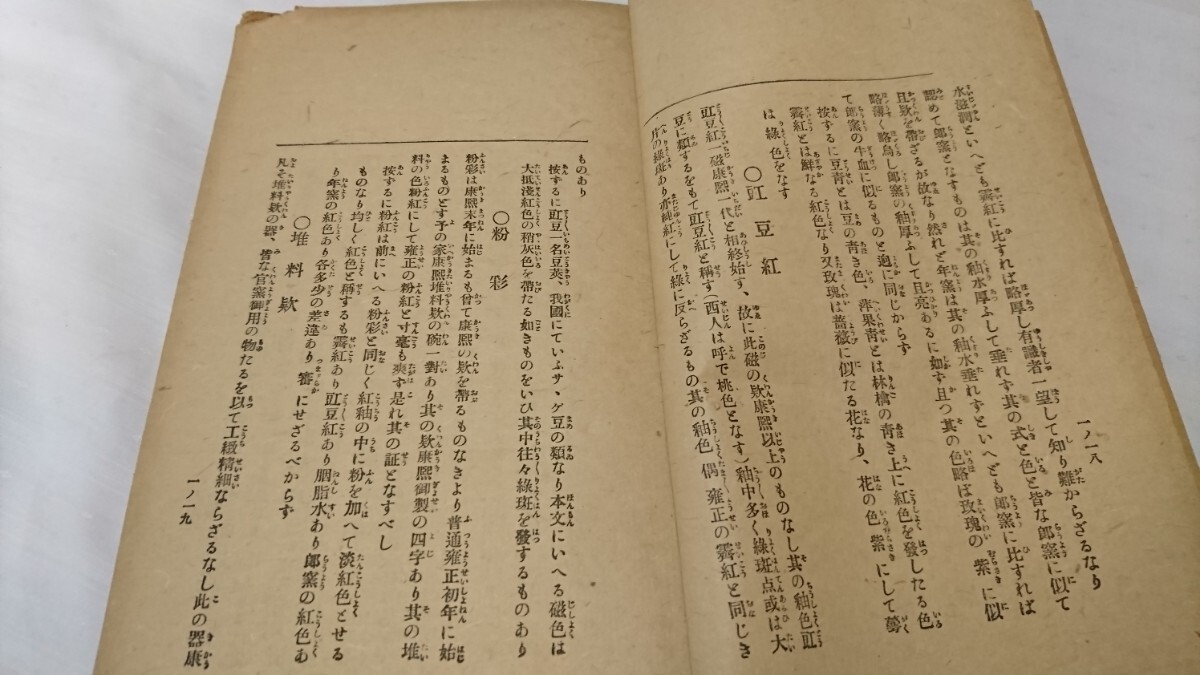 一ノ一八
水滋潤といへども霽紅に比すれば略厚し有識者一望して知り難からざるなり
認めて郎窯となすものは其の釉水厚ふして垂れず其の式と色と皆な郎窯に似て
且欵を帶ざるが故なり然れど年窯は其の釉水垂れずといへども郎窯に比すれば
略薄く略鳥し郎窯の釉厚ふして且亮あるに如ず且つ其の色略ぼ玫瑰の紫に似
て郎窯の牛血に似るものと逈に同じからず
按するに豆靑とは豆の靑き色、苹果靑とは林檎の靑き上に紅色を發したる色
霽紅とは鮮なる紅色なり又玫瑰は薔薇に似たる花なり、花の色紫にして蕚
は綠色をなす
〇豇豆紅
豇豆紅一磁康熙一代と相終始す、故に此磁の欵康熙以上のものなし其の釉色豇
豆に類するをもて豇豆紅と稱す(西人は呼で桃色となす)釉中多く綠斑点或は大
片の綠斑あり亦純紅にして綠に反らざるもの其の釉色偶雍正の霽紅と同じき
ものあり
按するに豇豆一名豆莢、我國にていふサヽゲ豆の類なり本文にいへる磁色は
大抵淺紅色の稍灰色を帶たる如きものをいひ其中往々綠斑を發するものあり
〇粉彩
粉彩は康熙末年に始まるも曾て康熙の欵を帶るものなきより普通雍正初年に始
まるものとす予の家康熙堆料欵の碗一對あり其の欵康熙御製の四字あり其の堆
料の色粉紅にして雍正の粉紅と寸毫も爽ず是れ其の証となすべし
按するに粉紅は前にいへる粉彩と同じく紅釉の中に粉を加へて淡紅色とせる
ものなり均しく紅色と稱するも霽紅あり豇豆紅あり胭脂水あり郎窯の紅色あ
り年窯の紅色あり各多少の差違あり審にせざるべからず
〇堆料欵
凡そ堆料欵の器、皆な官窯御用の物たるを以て工緻精細ならざるなし此の器康
一ノ一九